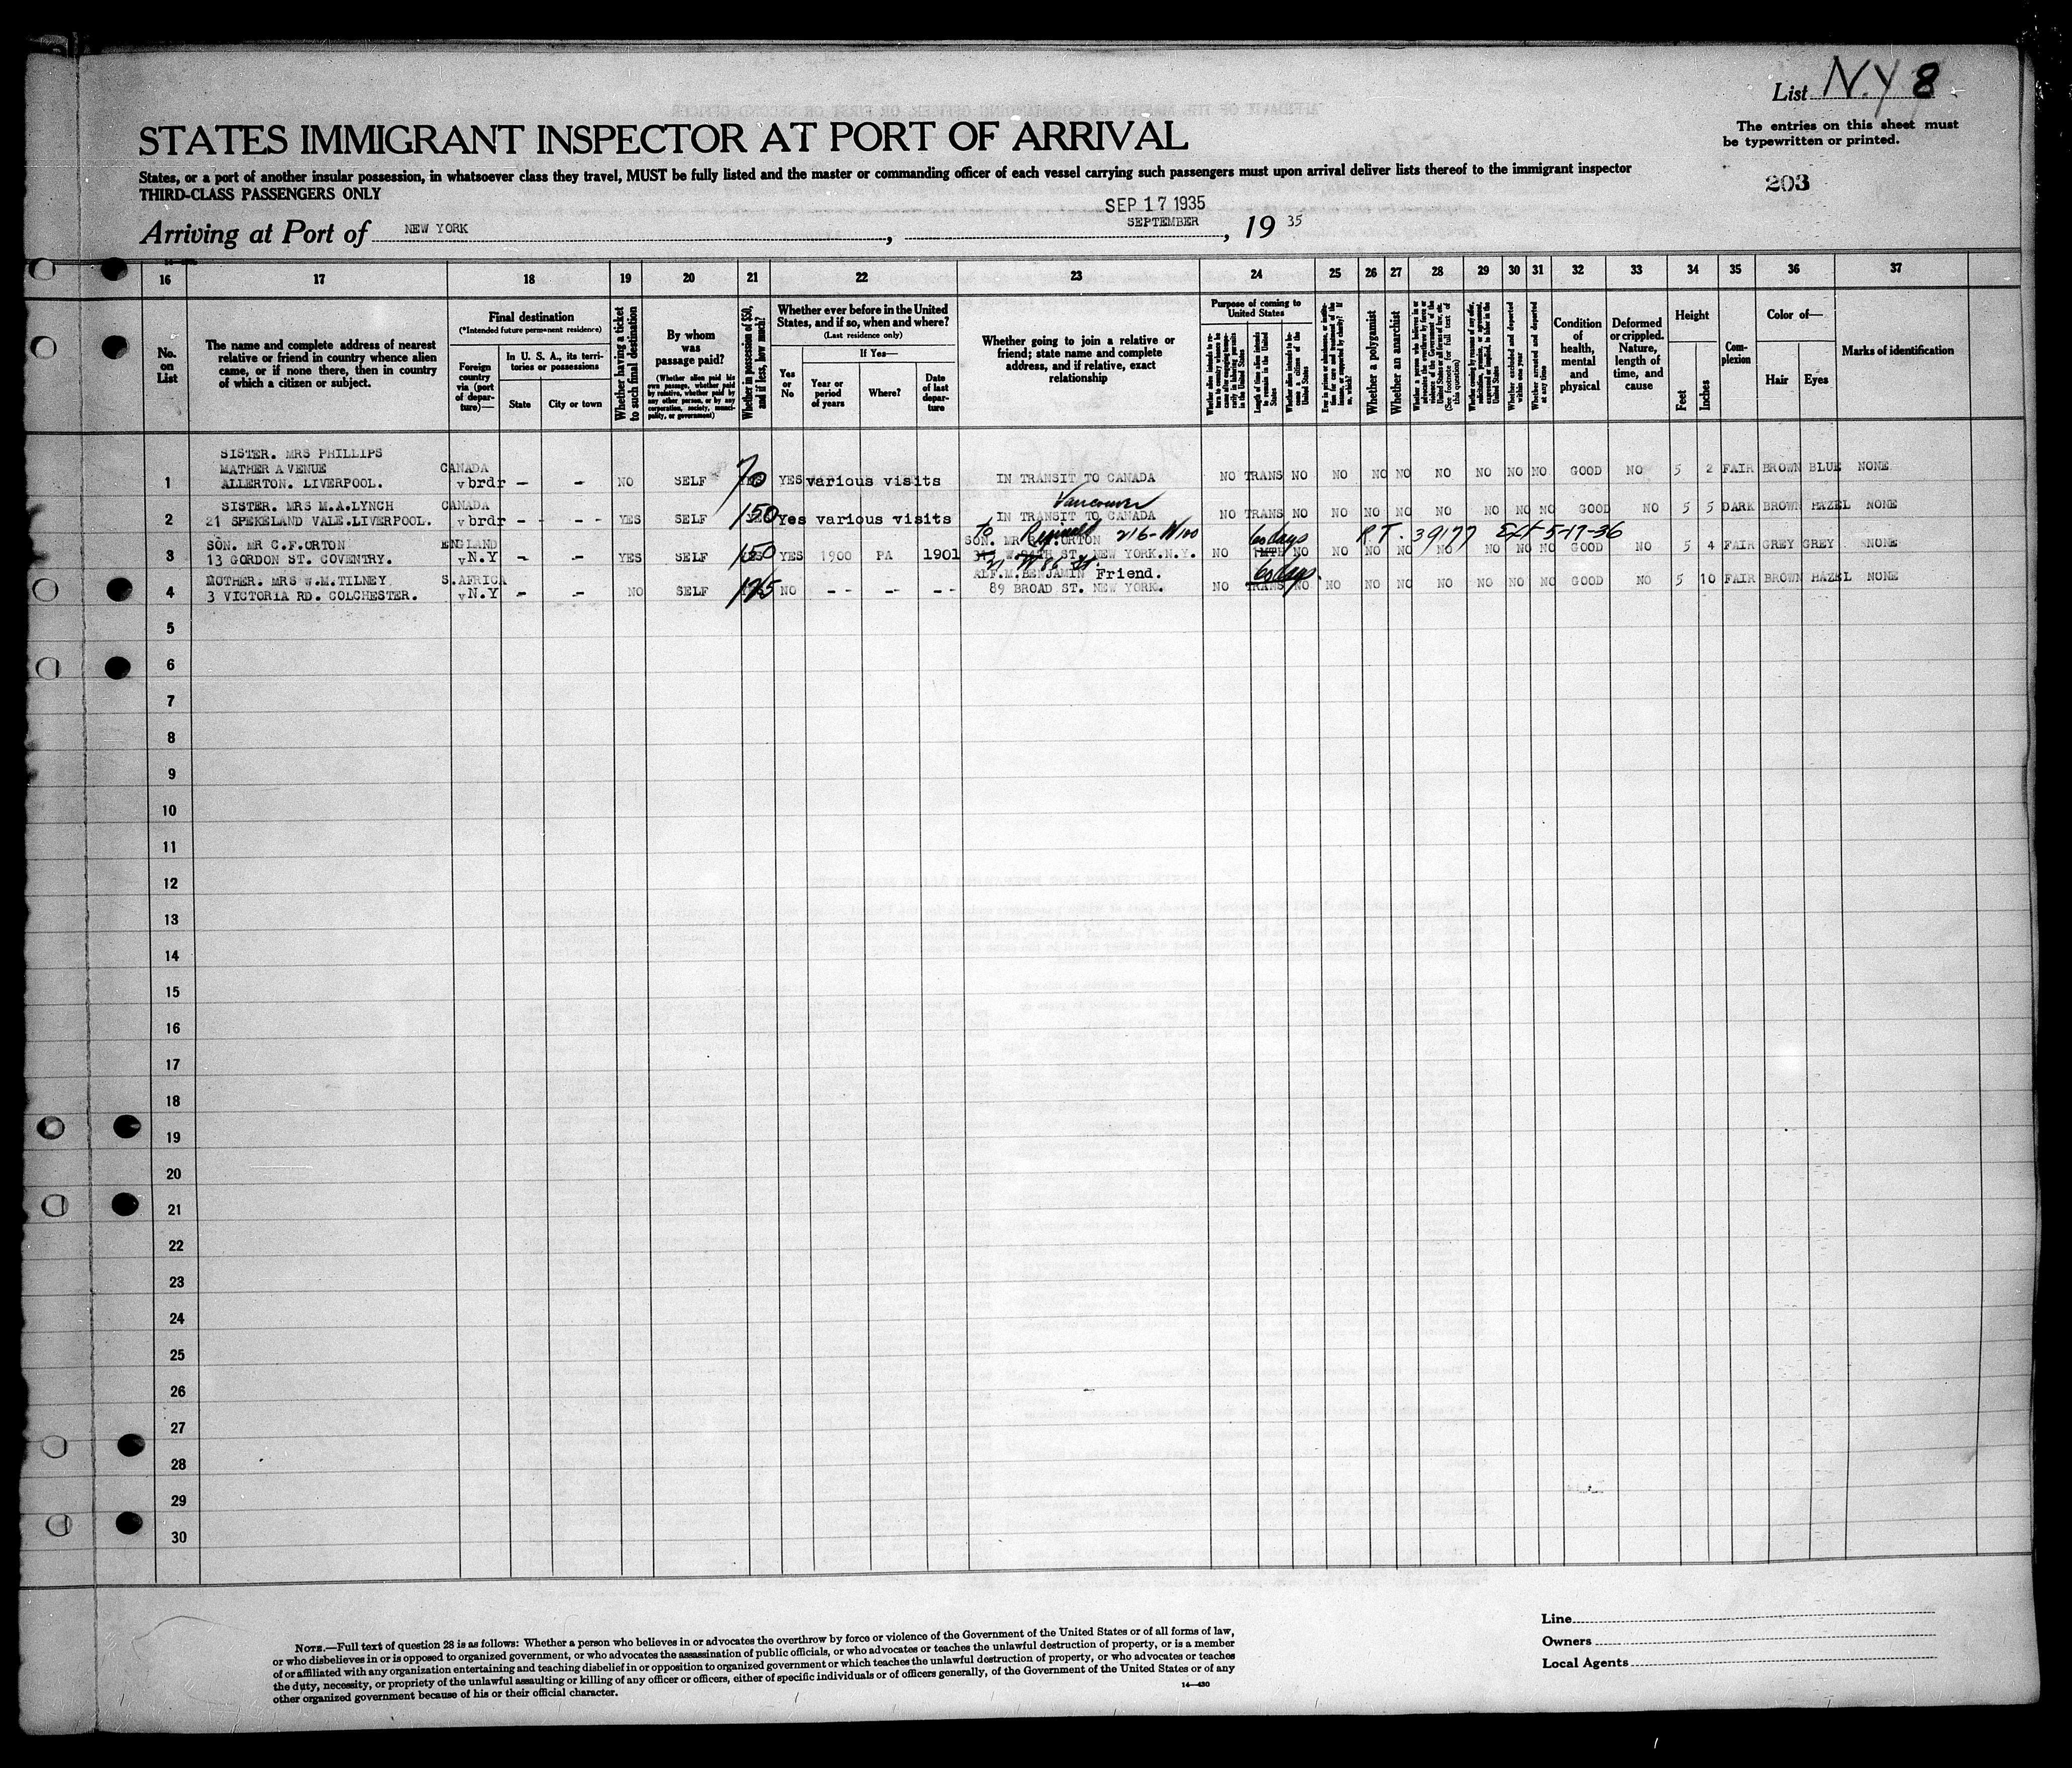 List N.Y 8
The entries on this sheet must
be typewritten or printed.
203
STATES IMMIGRANT INSPECTOR AT PORT OF ARRIVAL
States, or a port of another insular possession, in whatsoever class they travel, MUST be fully listed and the master or commanding officer of each vessel carrying such passengers must upon arrival deliver lists thereof to the immigrant inspector
THIRD-CLASS PASSENGERS ONLY
SEP 17 1935
Arriving at Port of NEW YORK, SEPTEMBER, 19 35
16 17 18 19 20 21 22 23 24 25 26 27 28 29 30 31 32 33 34 35 36 37
No. on List
The name and complete address of nearest relative or friend in country whence alien came, or if none there, then in country of which a citizen or subject.
Final destination
(*Intended future permanent residence)
Foreign country via (port of departure)—
In U. S. A., its territories or possessions
State
City or town
Whether having a ticket to such final destination
By whom was passage paid?
(Whether alien paid his own passage, whether paid by relative, whether paid by any other person, or by any corporation, society, municipality, or government)
Whether in possession of $50, and if less, how much?
Whether ever before in the United States, and if so, when and where?
(Last residence only)
Yes or No
If Yes—
Year or period of years
Where?
Date of last departure
Whether going to join a relative or friend; state name and complete address, and if relative, exact relationship
Purpose of coming to United States
Length of time alien intends to remain in the United States
Whether alien intends to become a citizen of the United States
Whether a polygamist
Whether an anarchist
Whether excluded and deported within one year
Whether arrested and deported at any time
Condition of health, mental and physical
Deformed or crippled. Nature, length of time, and cause
Height
Feet
Inches
Complexion
Color of—
Hair
Eyes
Marks of identification
SISTER. MRS PHILLIPS
MATHER AVENUE CANADA
1 ALLERTON. LIVERPOOL. v brdr - - NO SELF 70 YES various visits IN TRANSIT TO CANADA NO TRANS NO NO NO NO NO NO NO NO GOOD NO 5 2 FAIR BROWN BLUE NONE
SISTER. MRS M.A.LYNCH CANADA Vancouver
2 21 SPEKELAND VALE.LIVERPOOL. v brdr - - - - YES SELF 150 Yes various visits IN TRANSIT TO CANADA NO TRANS NO NO NO NO NO NO NO NO GOOD NO 5 5 DARK BROWN HAZEL NONE
SON. MR C.F.ORTON ENGLAND to SON. MR Reginald ORTON 216-W100 60 days R.T. 39177 Ext 5-17-36
3 13 GORDON ST. COVENTRY. v N.Y - - YES SELF 150 YES 1900 PA 1901 ST. NEW YORK.N.Y. NO 1MTH NO NO NO NO NO NO NO NO GOOD NO 5 4 FAIR GREY GREY NONE
21 W 86 St.
MOTHER. MRS W.M.TILNEY S.AFRICA ALF.M.BENJAMIN Friend. 60 days.
4 3 VICTORIA RD. COLCHESTER. v N.Y - - NO SELF 125 NO - - - - - - 89 BROAD ST. NEW YORK. NO TRANS NO NO NO NO NO NO NO NO GOOD NO 5 10 FAIR BROWN HAZEL NONE
5
6
7
8
9
10
11
12
13
14
15
16
17
18
19
20
21
22
23
24
25
26
27
28
29
30
Line
Owners
Local Agents
NOTE.—Full text of question 28 is as follows: Whether a person who believes in or advocates the overthrow by force or violence of the Government of the United States or of all forms of law,
or who disbelieves in or is opposed to organized government, or who advocates the assassination of public officials, or who advocates or teaches the unlawful destruction of property, or is a member
of or affiliated with any organization entertaining and teaching disbelief in or opposition to organized government or which teaches the unlawful destruction of property, or who advocates or teaches
the duty, necessity, or propriety of the unlawful assaulting or killing of any officer or officers, either of specific individuals or of officers generally, of the Government of the United States or of any
other organized government because of his or their official character.
14—430